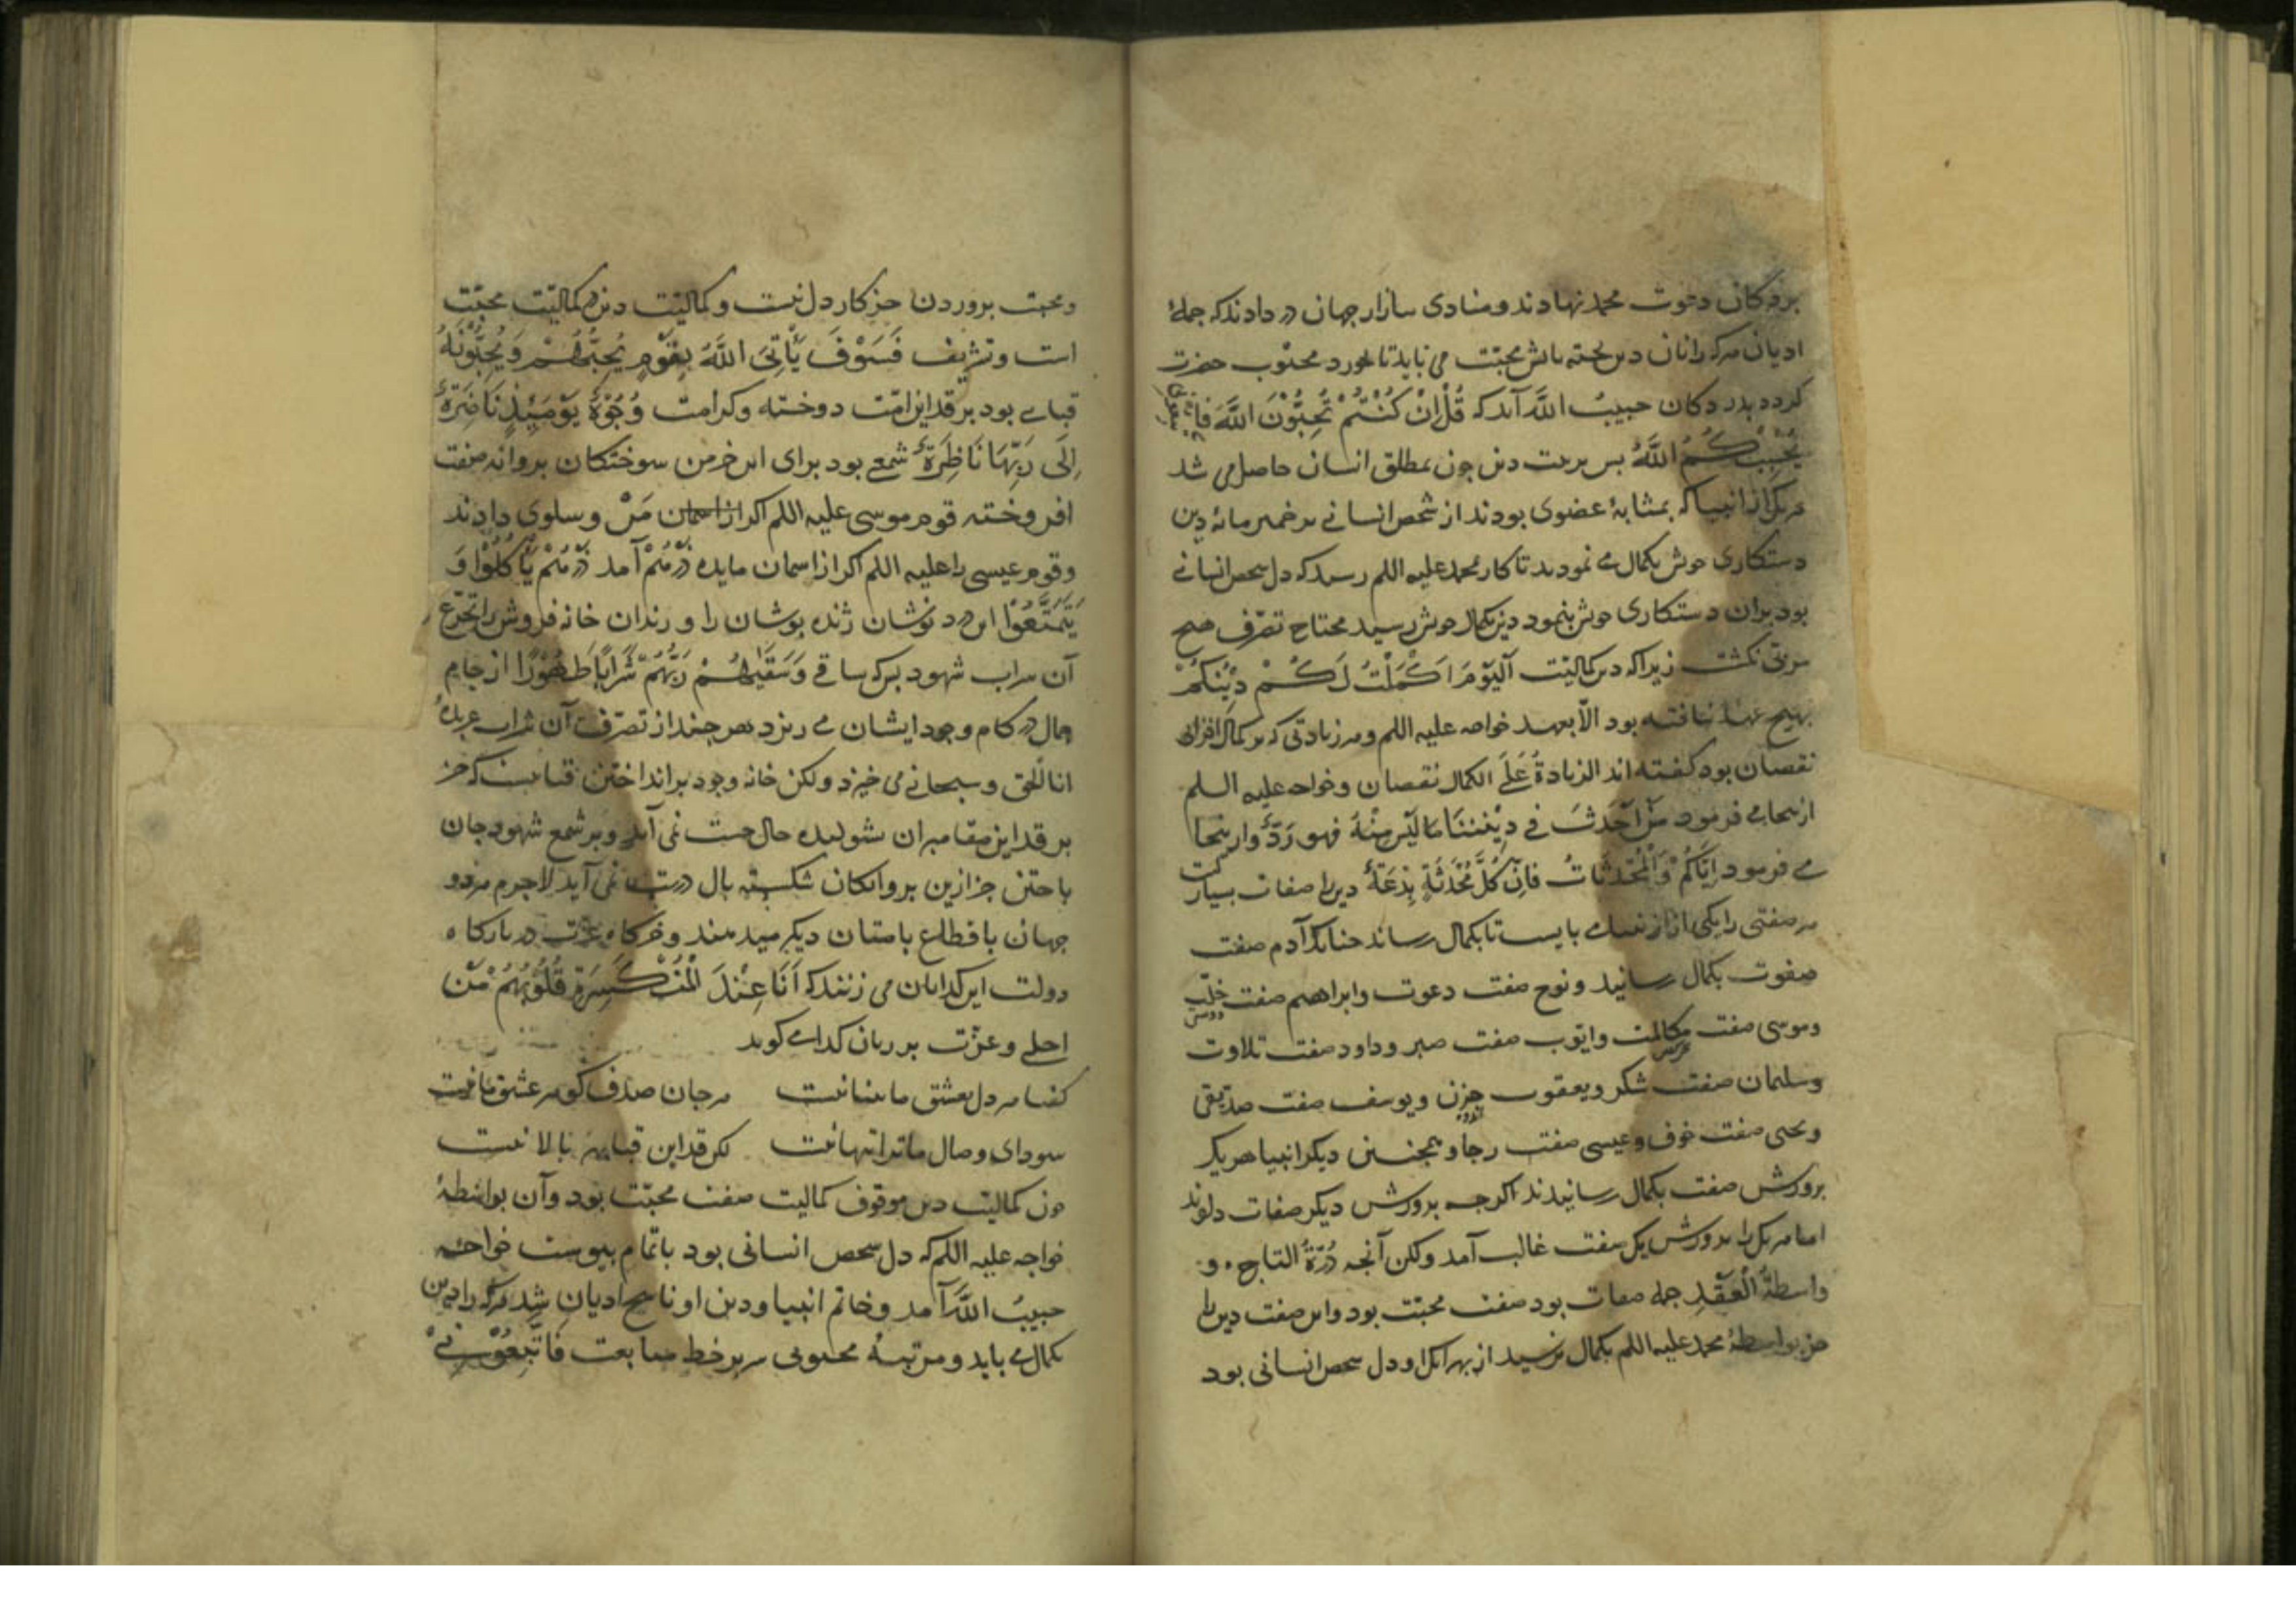 بر دکان دعوت محمد نهادند و منادی ببازار جهان در دادند که جملهٔ
ادیان هر که را نان دین پخته باتش محبت می باید تا خورد محبوب حضرت
کردد بدر دکان حبیبُ اللّه آید که قُلْ اِنْ کُنْتُمْ تُحِبُّوْنَ اللّهَ فاتبعونی
یُحْبِبْکُمُ اللّهُ بس بریت دین جون بمطلق انسان حاصل می شد
هر یک از انبیا که بمثابهٔ عضوی بودند از شخص انسانے بر خمیرمایهٔ دین
دستکاری خوش بکمال مے نمودند تا کار محمد علیه اللم رسید که دل شخص انسانے
بود بران دستکاری خوش بنمود دین بکمال خوش رسید محتاج تصرف هیچ
مربی نکشت زیرا که دین کمالیّت اَلْیَوْمَ اَکْمَلْتُ لَکُمْ دِیْنَکُمْ
بهیچ عهد نیافته بود الّا بعهد خواجه علیه اللم و هر زیادتی که بر کمال افزائی
نقصان بود کفته اند الزیادةُ عَلَی الکمال نقصان و خواجه علیه السلم
ازینجا مے فرمود مَنْ اَحْدَثَ فے دِیْنِنَا مَا لَیْسَ مِنْهُ فهو رَدٌّ و ازینجا
مے فرمود اِیّاکُمْ وَالْمُحْدَثَاتُ فَاِنَّ کُلَّ مُحْدَثَةٍ بِدْعَةٌ دین را صفات بسیار است
هر صفتی را یکی از انبیا مے بایست تا بکمال رساند جنانکه آدم صفت
صفوت بکمال رسانید و نوح صفت دعوت و ابراهیم صفت خلّت
و موسی صفت مکالمت و ایّوب صفت صبر و داود صفت تلاوت
و سلیمان صفت شکر و یعقوب حزن و یوسف صفت صدیقی
و یحیی صفت خوف و عیسی صفت رجا و همجنین دیکر انبیا هر یک
برورش صفت بکمال رسانیدند اکرجه برورش دیکر صفات دادند
اما هر یک را برورش یک صفت غالب آمد ولکن آنجه دُرّةُ التاج و
واسطةُ الْعَقْدِ جمله صفات بود صفت محبّت بود و این صفت دین را
جز بواسطهٔ محمد علیه اللم بکمال نرسید از بهر آنک او دل شخص انسانی بود
و محبت بروردن جز کار دل نیست و کمالیّت دین در کمالیّت محبّت
است و تشریف فَسَوْفَ یَأْتِیَ اللّهُ بِقَوْمٍ یُحِبُّهُمْ وَیُحِبُّوْنَهُ
قبایے بود بر قد این امّت دوخته و کرامت وُجُوْهٌ یَوْمَئِذٍ نَاضِرَةٌ
اِلَی رَبِّهَا نَاظِرَةٌ شمعے بود برای این خرمن سوختکان بروانه صفت
افروخته قوم موسی علیه اللم اکر از آسمان مَنّ و سلوی دادند
و قوم عیسی را علیه اللم اکر از اسمان مایده ذَرْهُمْ آمد ذَرْهُمْ یَأْکُلُوْا وَ
یَتَمَتَّعُوْا این درد نوشان ژنده بوشان را و رندان خانه فروش را تجرّع
آن شراب شهود بس که ساقے وَسَقَیٰهُمْ رَبُّهُمْ شَرَابًا طَهُوْرًا از جام
جمال در کام وجود ایشان مے ریزد هر جند از تصرّف آن شراب عربدهٔ
انا الحق و سبحانے می خیزد ولکن خانه وجود برانداختن قبایست که جز
بر قد این مقامران شولیده حال جست نمی آید و بر شمع شهود جان
باختن جز ازین بروانکان شکسته بال درست نمی آید لاجرم هر دو
جهان باقطاع بامتان دیکر میدهند و خرکاه عزّت در بارکاه
دولت این کدایان می زنند که اَنَا عِنْدَ الْمُنْکَسِرَةِ قُلُوْبُهُمْ مِنْ
اجلے و عزّت بر زبان کدایے کوید
کفتا هر دل بعشق ما بینا نیست هر جان صدف کوهر عشق ما نیست
سودای وصال ما ترا تنها نیست لکن قد این قبا بهر بالا نیست
جون کمالیّت دین موقوف کمالیت صفت محبّت بود و آن بواسطهٔ
خواجه علیه اللم که دل شخص انسانی بود باتمام بیوست خواجه
حبیبُ اللّه آمد و خاتم انبیا و دین او ناسخ ادیان شد هر که را دین
بکمال مے باید و مرتبهٔ محبوبی سر بر خط متابعت فَاتَّبِعُوْنِیْ